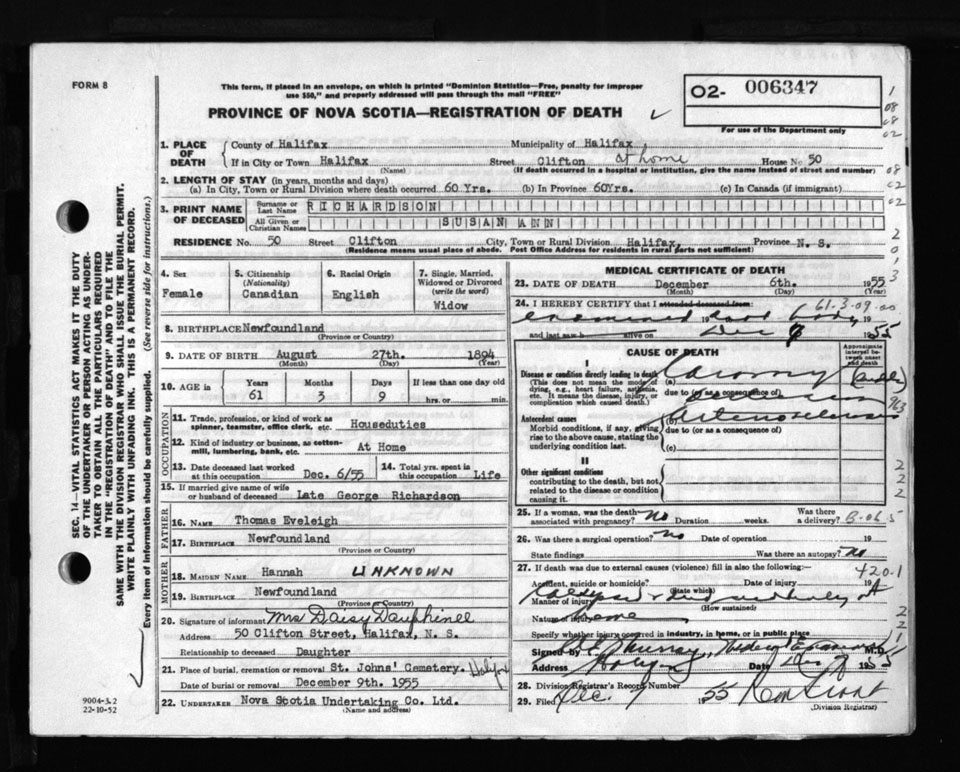 FORM 8
This form, if placed in an envelope, on which is printed "Dominion Statistics—Free, penalty for improper
use $50," and properly addressed will pass through the mail "FREE"
PROVINCE OF NOVA SCOTIA—REGISTRATION OF DEATH
O2- 006347
For use of the Department only
1. PLACE OF DEATH
County of Halifax Municipality of Halifax
If in City or Town Halifax Street Clifton at home House No. 50
(Name) (If death occurred in a hospital or institution, give the name instead of street and number)
2. LENGTH OF STAY (in years, months and days)
(a) In City, Town or Rural Division where death occurred 60 Yrs. (b) In Province 60Yrs. (c) In Canada (if immigrant)
3. PRINT NAME OF DECEASED
Surname or Last Name RICHARDSON
All Given or Christian Names SUSAN ANN
RESIDENCE No. 50 Street Clifton City, Town or Rural Division Halifax, Province N. S.
(Residence means usual place of abode. Post Office Address for residents in rural parts not sufficient)
4. Sex Female
5. Citizenship (Nationality) Canadian
6. Racial Origin English
7. Single, Married, Widowed or Divorced (write the word) Widow
8. BIRTHPLACE Newfoundland
(Province or Country)
9. DATE OF BIRTH August 27th. 1894
(Month) (Day) (Year)
10. AGE in Years 61 Months 3 Days 9 If less than one day old hrs. or min.
OCCUPATION
11. Trade, profession, or kind of work as spinner, teamster, office clerk, etc. Houseduties
12. Kind of industry or business, as cotton-mill, lumbering, bank, etc. At Home
13. Date deceased last worked at this occupation Dec. 6/55
14. Total yrs. spent in this occupation Life
15. If married give name of wife or husband of deceased Late George Richardson
FATHER
16. NAME Thomas Eveleigh
17. BIRTHPLACE Newfoundland
(Province or Country)
MOTHER
18. MAIDEN NAME Hannah UNKNOWN
19. BIRTHPLACE Newfoundland
(Province or Country)
20. Signature of informant Mrs Daisy Dauphinee
Address 50 Clifton Street, Halifax, N. S.
Relationship to deceased Daughter
21. Place of burial, cremation or removal St. Johns' Cemetery. Halifax
Date of burial or removal December 9th. 1955
22. UNDERTAKER Nova Scotia Undertaking Co. Ltd.
(Name and address)
MEDICAL CERTIFICATE OF DEATH
23. DATE OF DEATH December 6th. 1955
(Month) (Day) (Year)
24. I HEREBY CERTIFY that I attended deceased from: 61-3-09-00
examined 19 dead body 19
and last saw h alive on Dec 1955
CAUSE OF DEATH
Approximate interval between onset and death
I
Disease or condition directly leading to death
(This does not mean the mode of dying, e.g., heart failure, asthenia, etc. It means the disease, injury, or complication which caused death.)
(a) Coronary
due to (or as a consequence of)
Antecedent causes
Morbid conditions, if any, giving rise to the above cause, stating the underlying condition last.
(b) Arteriosclerosis
due to (or as a consequence of)
(c)
II
Other significant conditions
contributing to the death, but not related to the disease or condition causing it.
25. If a woman, was the death associated with pregnancy? no Duration weeks. Was there a delivery?
26. Was there a surgical operation? no Date of operation 19
State findings Was there an autopsy? no
27. If death was due to external causes (violence) fill in also the following:
420.1
Accident, suicide or homicide? Date of injury 19
(State which)
Manner of injury
(How sustained)
Nature of injury home
Specify whether injury occurred in industry, in home, or in public place
Signed by Murray, Medical Examiner M.D.
Address Halifax Date Dec 1955
28. Division Registrar's Record Number
29. Filed Dec. 1955
(Division Registrar)
SEC. 14—VITAL STATISTICS ACT MAKES IT THE DUTY
OF THE UNDERTAKER OR PERSON ACTING AS UNDER-
TAKER TO OBTAIN ALL THE PARTICULARS REQUIRED
IN THE "REGISTRATION OF DEATH" AND TO FILE THE
SAME WITH THE DIVISION REGISTRAR WHO SHALL ISSUE THE BURIAL PERMIT.
WRITE PLAINLY WITH UNFADING INK. THIS IS A PERMANENT RECORD.
Every item of information should be carefully supplied. (See reverse side for instructions.)
9004-3.2
22-10-52